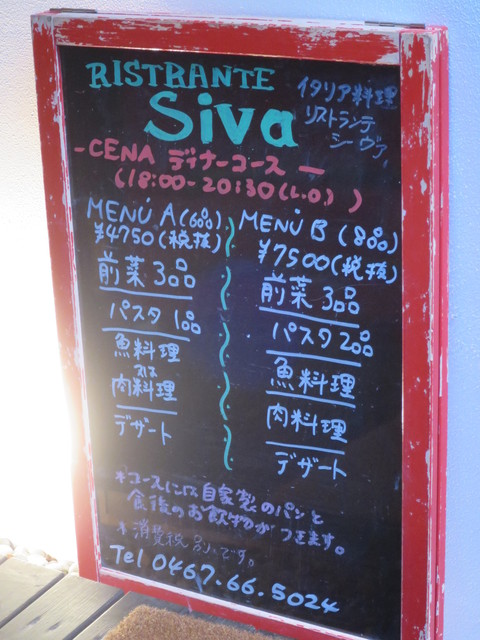 RISTRANTE
Siva
イタリア料理
リストランテ
シーヴァ
-CENA ディナーコース ー
(18:00-20:30(L.O.))
MENÚ A (6品)
¥4750(税抜)
前菜 3品
パスタ 1品
魚料理
又は
肉料理
デザート
MENÚ B (8品)
¥7500(税抜)
前菜 3品
パスタ 2品
魚料理
肉料理
デザート
*コースには自家製のパンと
食後のお飲物がつきます。
*消費税 です。
Tel 0467.66.5024